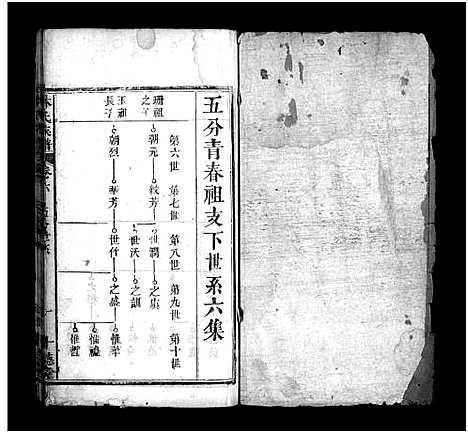 五分青春祖支下世系六集
第六世 第七世 第八世 第九世 第十世
珊祖之子 朝元 紋芳 世潤 之集
世沃 之訓
玉祖長子 朝烈 華芳 世什 之盛 惟萃
惟禮
惟哲
林氏族譜 卷六